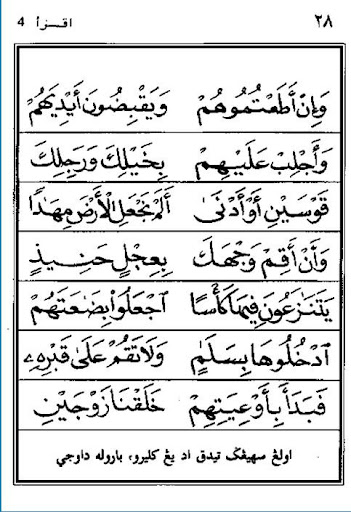 ٢٨ اقـرأ 4
وَإِنْ أَطَعْتُمُوهُمْ وَيَقْبِضُونَ أَيْدِيَهُمْ
وَأَجْلِبْ عَلَيْهِمْ بِخَيْلِكَ وَرَجِلِكَ
قَوْسَيْنِ أَوْ أَدْنَىٰ أَلَمْ نَجْعَلِ الْأَرْضَ مِهَٰدًا
وَأَنْ أَقِمْ وَجْهَكَ بِعِجْلٍ حَنِيذٍ
يَتَنَٰزَعُونَ فِيهَا كَأْسًا ٱجْعَلُوا۟ بِضَٰعَتَهُمْ
ٱدْخُلُوهَا بِسَلَٰمٍ وَلَا تَقُمْ عَلَىٰ قَبْرِهِۦ
فَبَدَأَ بِأَوْعِيَتِهِمْ خَلَقْنَا زَوْجَيْنِ
اولڠ سهيڠݢ تيدق اد يڠ كليرو، باروله داوجي